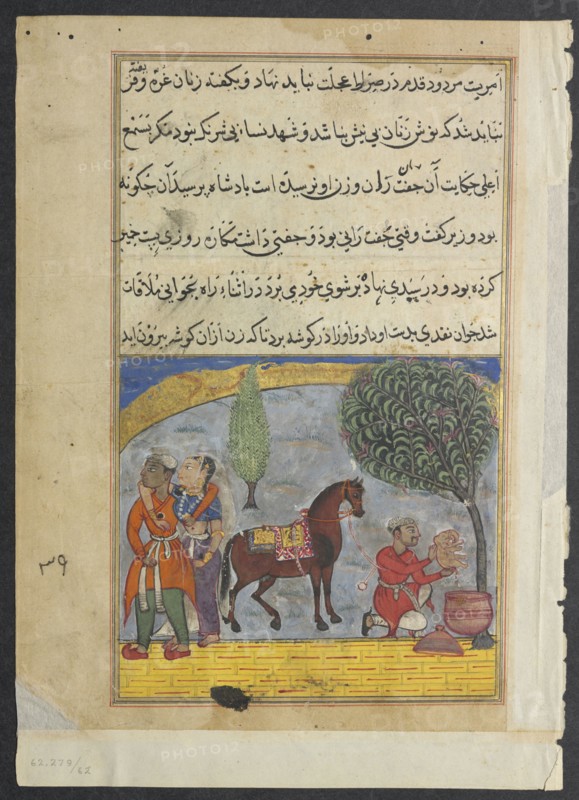 امریت مردود قدم در صراط عجلت نباید نهاد و بگفته زنان غره و فریفته
نباید شد که نوش زنان بی نیش نباشد و شهد نساء بی شرنک نبود مکر نسمع
اعلی حکایت آن جفت ران و زن او نرسیده است بادشاه پرسید آن چکونه
بود وزیر کفت وقتی جفت رانی بود و جفتی داشت مکاره روزی پست جیزی
کرده بود و در سبدی نهاده بر شوی خود می برد در اثناء راه بجوانی ملاقات
شد جوان نقدی بدست او داد و او را در کوشه برد تا که زن ازان کوشه بیرون اید
۳۹
62.279/62
PHOTO12